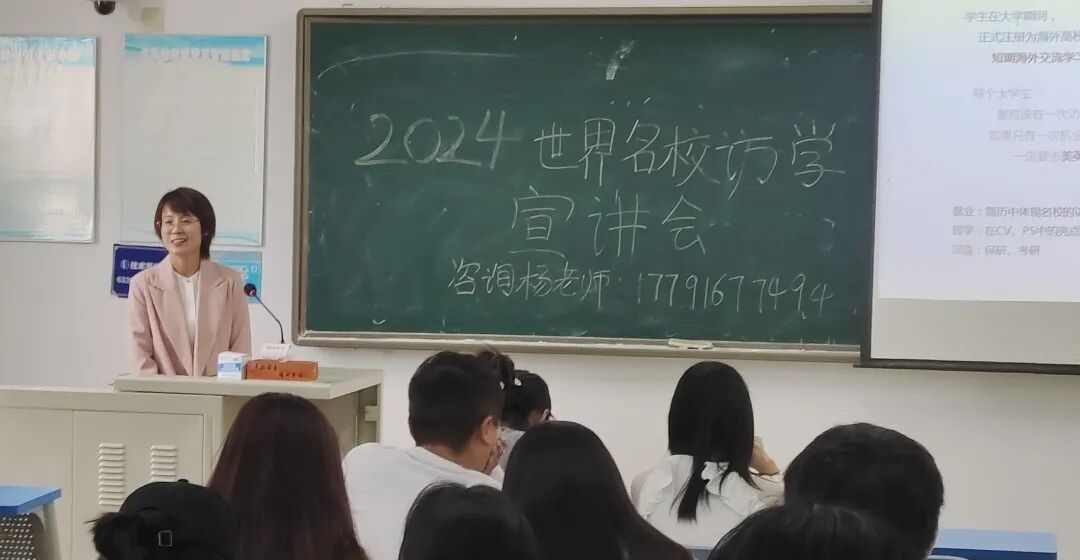 2024世界名校访学
宣讲会
咨询杨老师:17791677494
学生在大学期间,
正式注册为海外高校
短期海外交流学习
每个大学生:
都应该有一次访
如果只有一次机会
一定要去美英
就业:简历中体现名校的
留学:在CV、PS中的亮点
深造:保研、考研